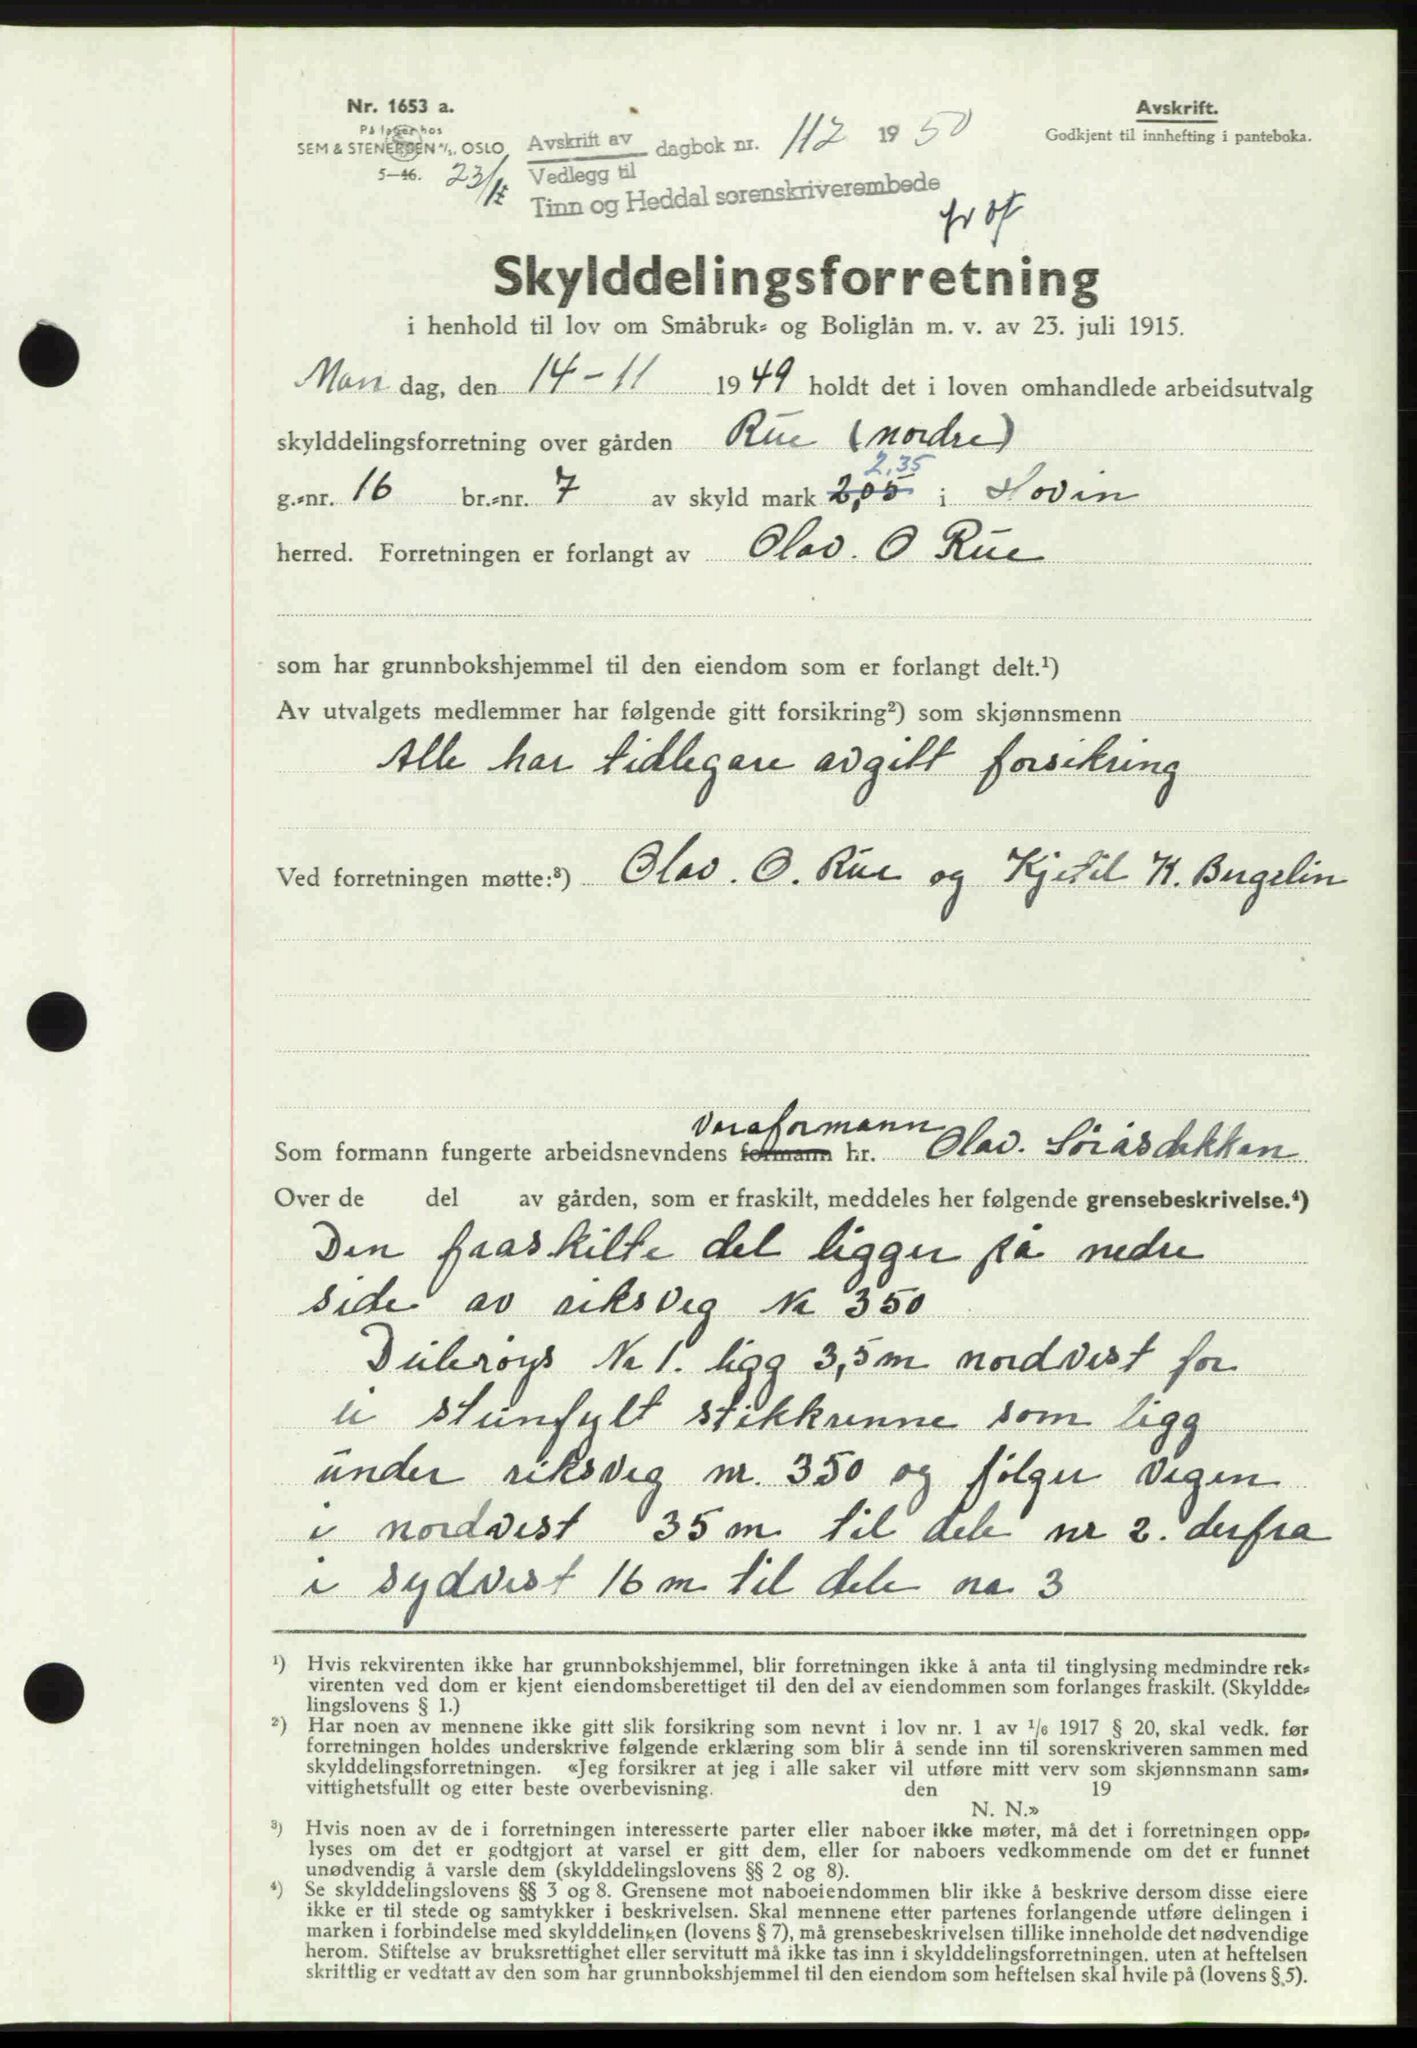 Nr. 1653 a.
På lager hos
SEM & STENERSEN A/S. OSLO
5—46.
23/1
Avskrift av
Vedlegg til
dagbok nr. 112 1950
Tinn og Heddal sorenskriverembede
Avskrift.
Godkjent til innhefting i panteboka.
Skylddelingsforretning
i henhold til lov om Småbruk- og Boliglån m. v. av 23. juli 1915.
Mandag, den 14-11 1949 holdt det i loven omhandlede arbeidsutvalg
skylddelingsforretning over gården Rue (nordre)
2,35
g.-nr. 16 br.-nr. 7 av skyld mark 2,05 i Hovin
herred. Forretningen er forlangt av Olav. O Rue
som har grunnbokshjemmel til den eiendom som er forlangt delt.¹)
Av utvalgets medlemmer har følgende gitt forsikring²) som skjønnsmenn
Alle har tidlegare avgitt forsikring
Ved forretningen møtte:³) Olav. O. Rue og Kjetil K. Bergelin
Varaformann
Som formann fungerte arbeidsnevndens formann hr. Olav. Söråsdekkan
Over de del av gården, som er fraskilt, meddeles her følgende grensebeskrivelse.⁴)
Den fraskilte del ligger på nedre
side av riksveg Nr 350
Delerøys Nr 1. ligg 3,5 m nordvest for
ei steinfylt stikkrenne som ligg
under riksveg nr. 350 og følger vegen
i nordvest 35 m til dele nr 2. derfra
i sydvest 16 m til dele nr 3
¹) Hvis rekvirenten ikke har grunnbokshjemmel, blir forretningen ikke å anta til tinglysing medmindre rek-
virenten ved dom er kjent eiendomsberettiget til den del av eiendommen som forlanges fraskilt. (Skyldde-
lingslovens § 1.)
²) Har noen av mennene ikke gitt slik forsikring som nevnt i lov nr. 1 av 1/6 1917 § 20, skal vedk. før
forretningen holdes underskrive følgende erklæring som blir å sende inn til sorenskriveren sammen med
skylddelingsforretningen. «Jeg forsikrer at jeg i alle saker vil utføre mitt verv som skjønnsmann sam-
vittighetsfullt og etter beste overbevisning. den 19
N. N.»
³) Hvis noen av de i forretningen interesserte parter eller naboer ikke møter, må det i forretningen opp-
lyses om det er godtgjort at varsel er gitt dem, eller for naboers vedkommende om det er funnet
unødvendig å varsle dem (skylddelingslovens §§ 2 og 8).
⁴) Se skylddelingslovens §§ 3 og 8. Grensene mot naboeiendommen blir ikke å beskrive dersom disse eiere
ikke er til stede og samtykker i beskrivelsen. Skal mennene etter partenes forlangende utføre delingen i
marken i forbindelse med skylddelingen (lovens § 7), må grensebeskrivelsen tillike inneholde det nødvendige
herom. Stiftelse av bruksrettighet eller servitutt må ikke tas inn i skylddelingsforretningen. uten at heftelsen
skriftlig er vedtatt av den som har grunnbokshjemmel til den eiendom som heftelsen skal hvile på (lovens §.5).